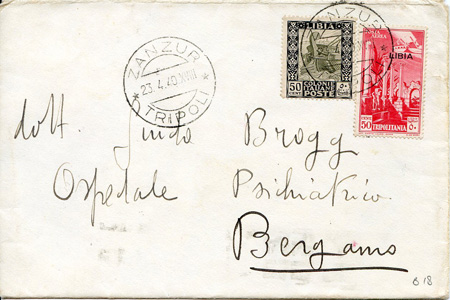 ZANZUR
23.4.40 XVIII
TRIPOLI
LIBIA
50
COLONIE ITALIANE
POSTE
ZANZUR
POSTA AEREA
LIBIA
50
TRIPOLITANIA
dott. Guido Brogg
Ospedale Psichiatrico
Bergamo
618